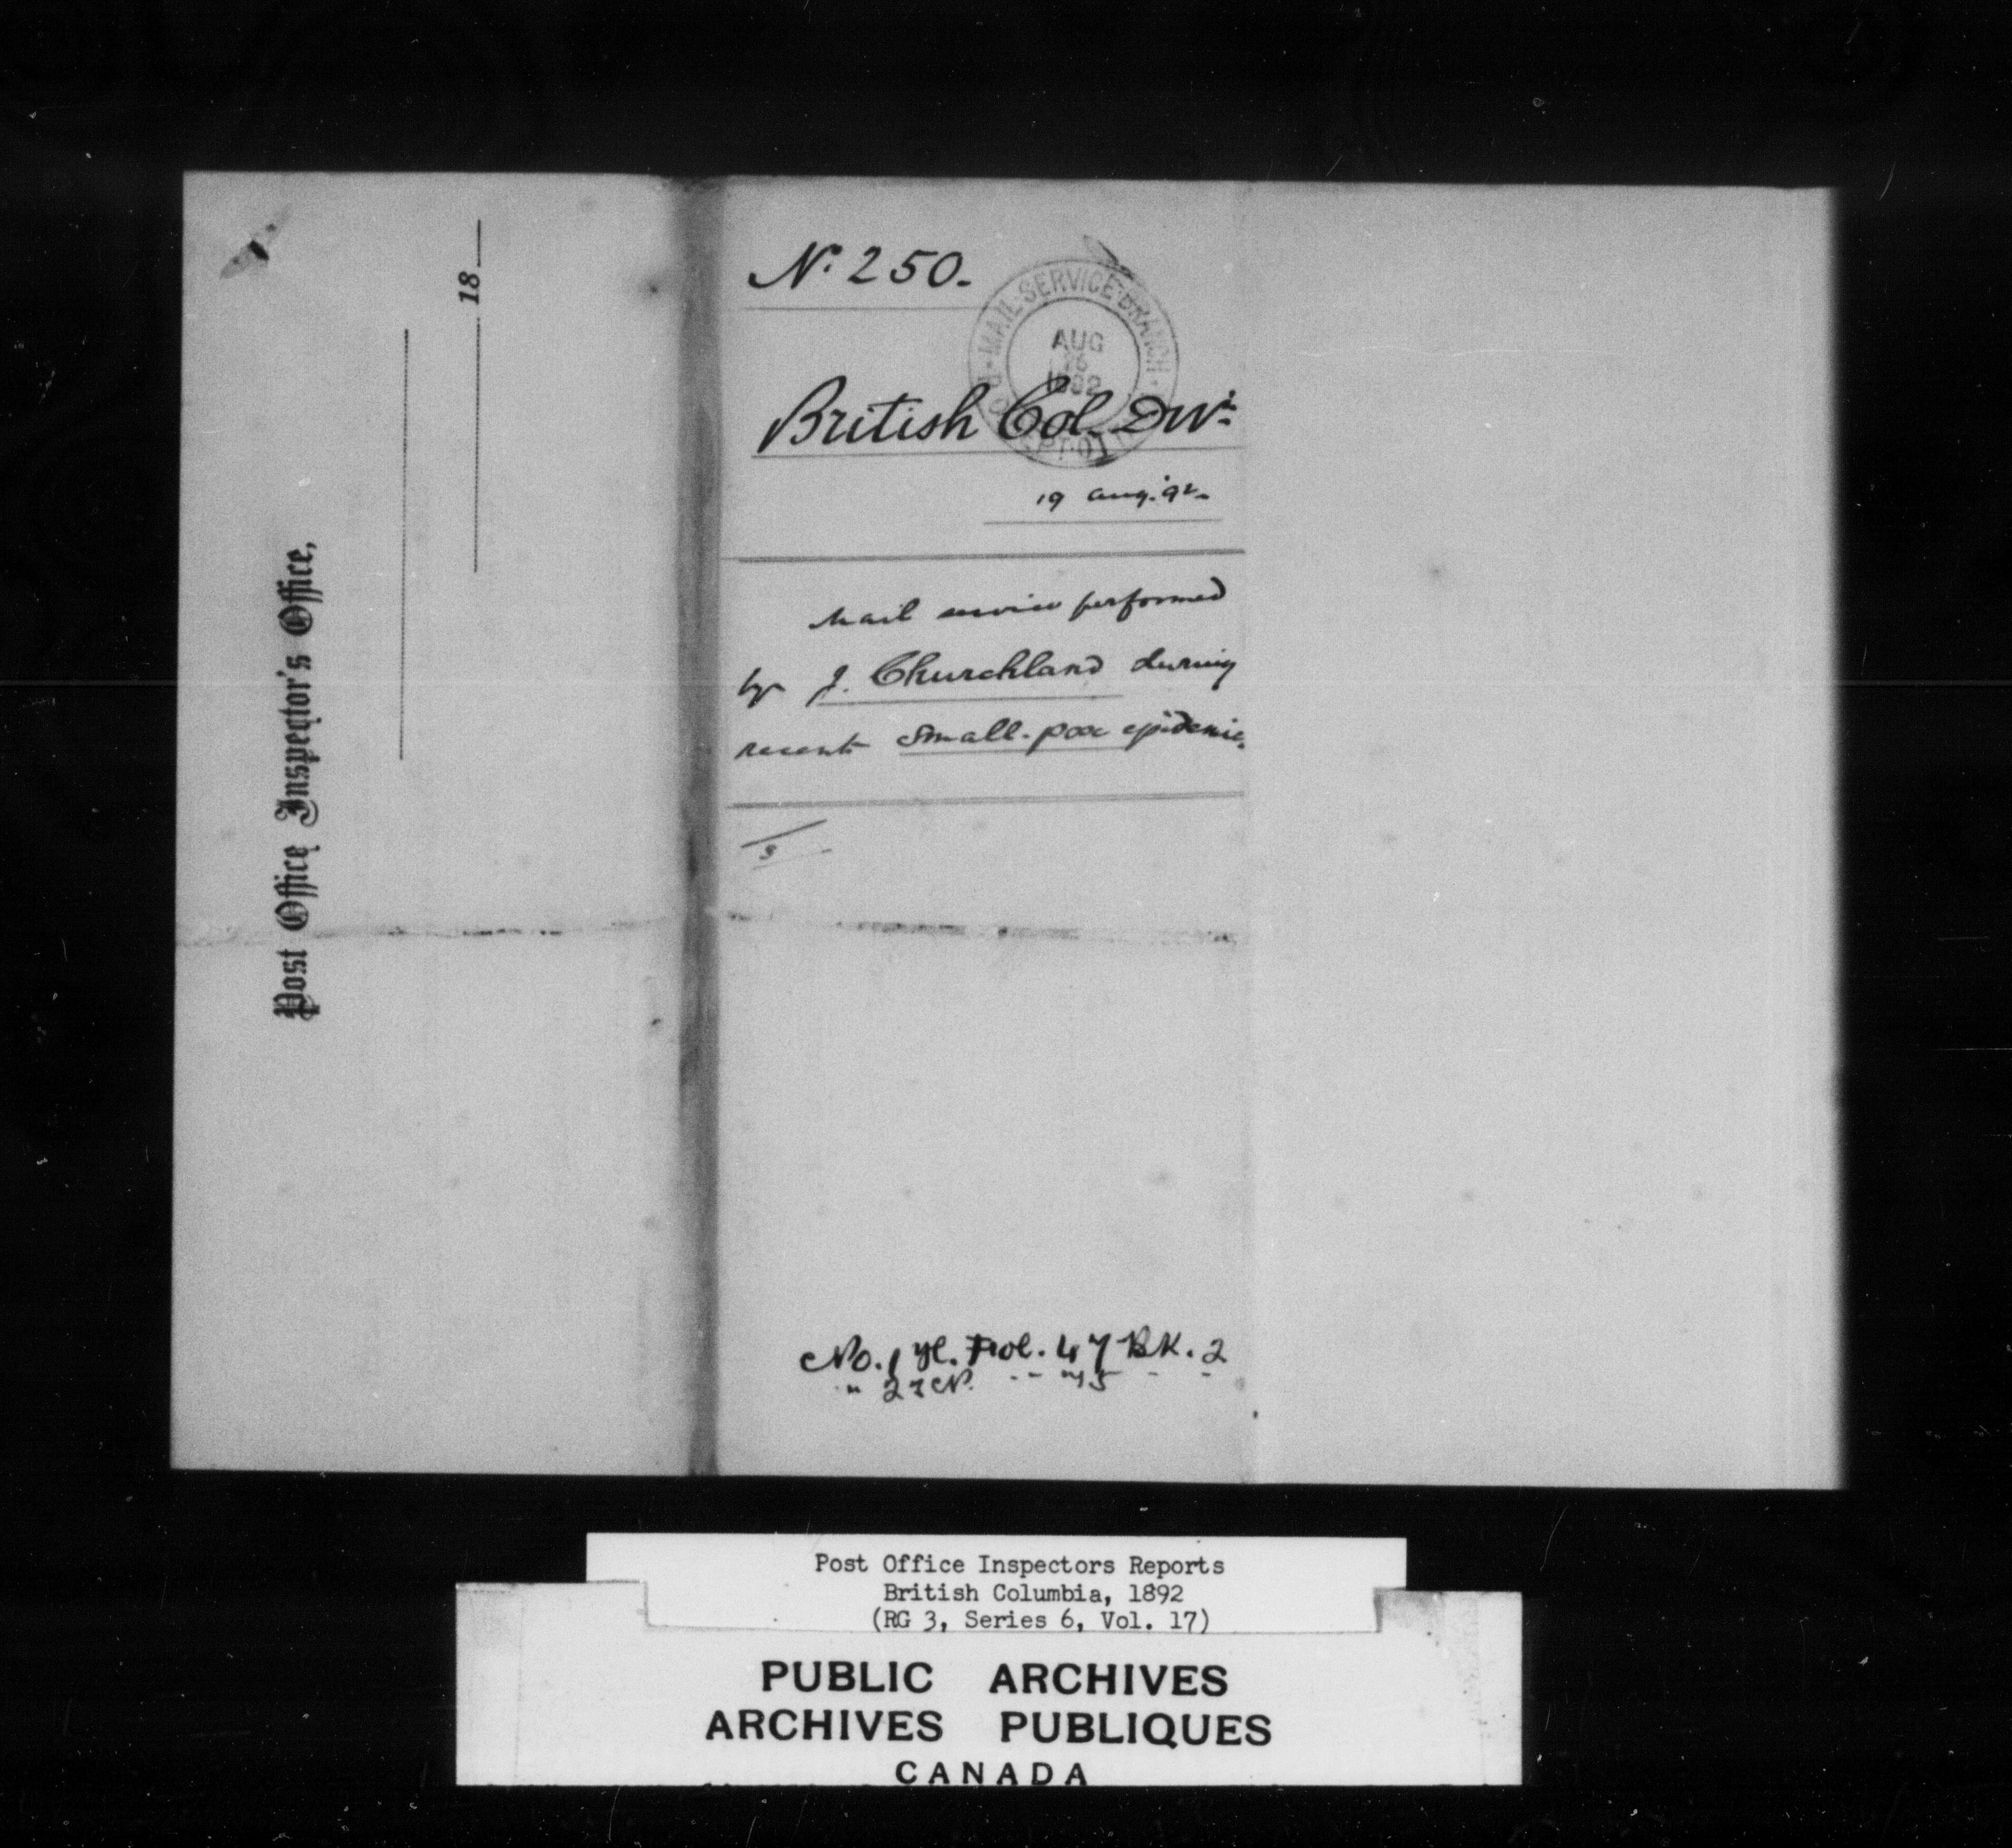 Post Office Inspector's Office,
18
No. 250.
MAIL SERVICE BRANCH
AUG
1892
British Col. Divn.
19 Aug. '92
Mail service performed
by J. Churchland during
recent Small-pox epidemic.
No. 1 Yl. Fol. 47 BK. 2
Post Office Inspectors Reports
British Columbia, 1892
(RG 3, Series 6, Vol. 17)
PUBLIC ARCHIVES
ARCHIVES PUBLIQUES
CANADA